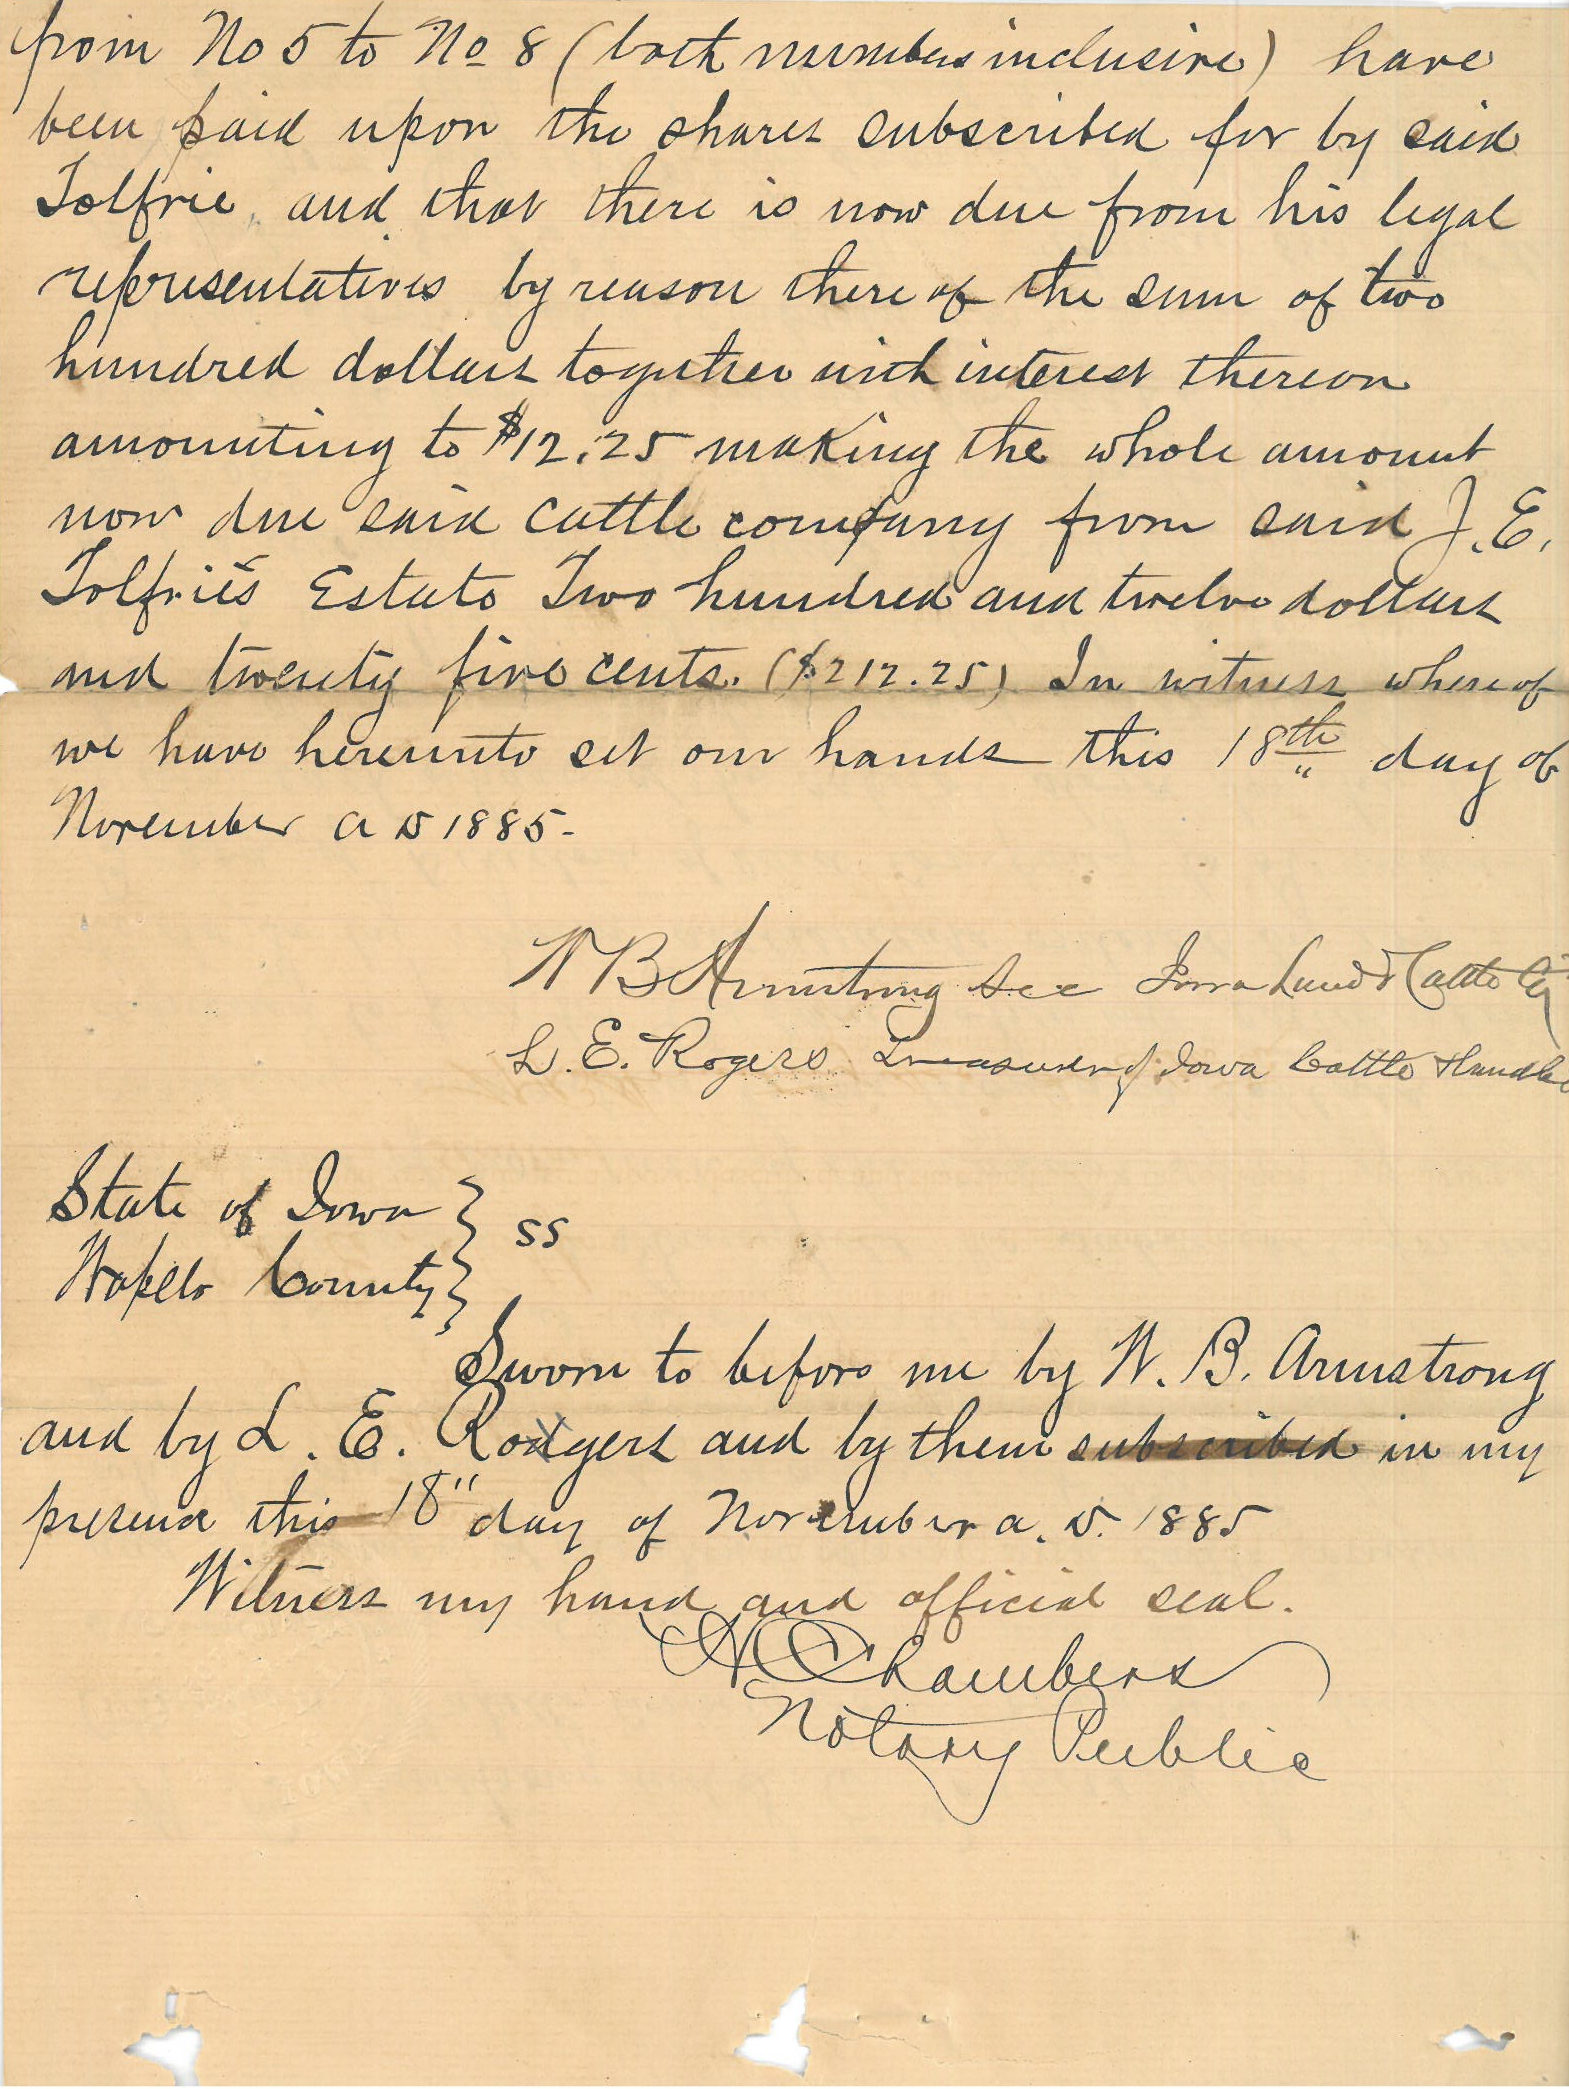 from No 5 to No 8 (both numbers inclusive) have
been paid upon the shares subscribed for by said
Tolfrie, and that there is now due from his legal
representatives by reason there of the sum of two
hundred dollars together with interest thereon
amounting to $12.25 making the whole amount
now due said cattle company from said J. E.
Tolfrie's Estate Two hundred and twelve dollars
and twenty five cents. ($212.25) In witness where of
we have hereunto set our hands this 18th day of
November A D 1885-
W B Armstrong Sec Iowa Land & Cattle Co
L. E. Rogers Treasurer of Iowa Cattle & Land Co
State of Iowa } ss
Wapello County }
Sworn to before me by W. B. Armstrong
and by L. E. Rogers and by them subscribed in my
presence this 18" day of November a. D. 1885
Witness my hand and official seal.
Chambers
Notary Public